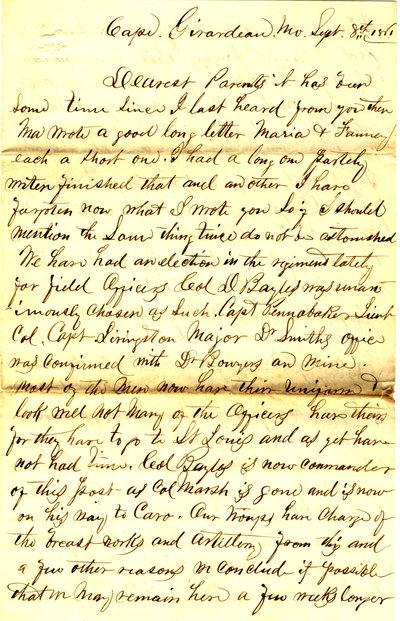 Cape. Girardeau Mo. Sept. 8th 1861
Dearest Parents it has been
some time since I last heard from you then
Ma wrote a good long letter Maria & Fanney
each a short one. I had a long one partely
writen finished that and another I have
forgoten now what I wrote you so if I should
mention the same thing twice do not be astonished
We have had an election in the regiment lately
for field officers Col D Bayles was unan
imously chosen as such. Capt Pennabaker Lieut
Col. Capt Livingston Major Dr Smiths office
was confirmed with Dr Bowyers an mine.
Most of the men now have their uniforms &
look well not many of the officers have theirs
for they have to go to St Louis and as yet have
not had time. Col Bayles is now commander
of this post as Col Marsh is gone and is now
on his way to Caro. Our troops have charge of
the breast works and artillery from this and
a few other reasons we conclude if possible
that we may remain here a few weeks longer